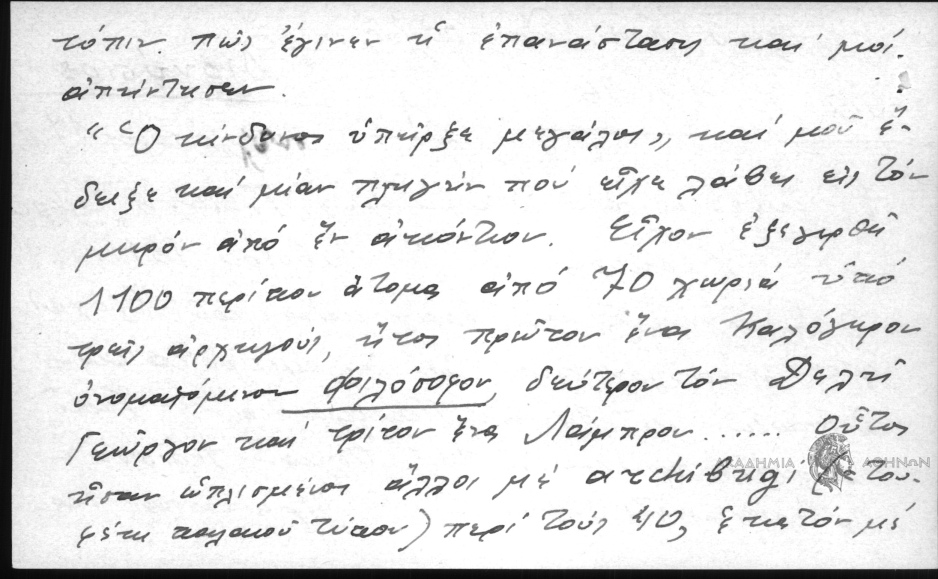 τόπιν. πῶς ἔγινεν ἡ ἐπανάστασις καί μοί
ἀπήντησεν.
"Ὁ κίνδυνος ὑπῆρξε μεγάλος", καί μοῦ ἔ-
δειξε καί μίαν πληγήν πού εἶχε λάβει εἰς τόν
μηρόν ἀπό ἕν ἀκόντιον. Εἶχον ἐξεγερθῆ
1100 περίπου ἄτομα ἀπό 70 χωριά ὑπό
τρεῖς ἀρχηγούς, ἤτοι πρῶτον ἕνα Καλόγηρον
ὀνομαζόμενον Φιλόσοφον, δεύτερον τόν Δελῆ
Γεώργον καί τρίτον ἕνα Λάμπρον...... Οὗτοι
ἦσαν ὡπλισμένοι ἄλλοι μέ archibugi (του-
φέκι παλαιοῦ τύπου) περί τούς 40, ἑκατόν μέ
ΑΚΑΔΗΜΙΑ ΑΘΗΝΩΝ